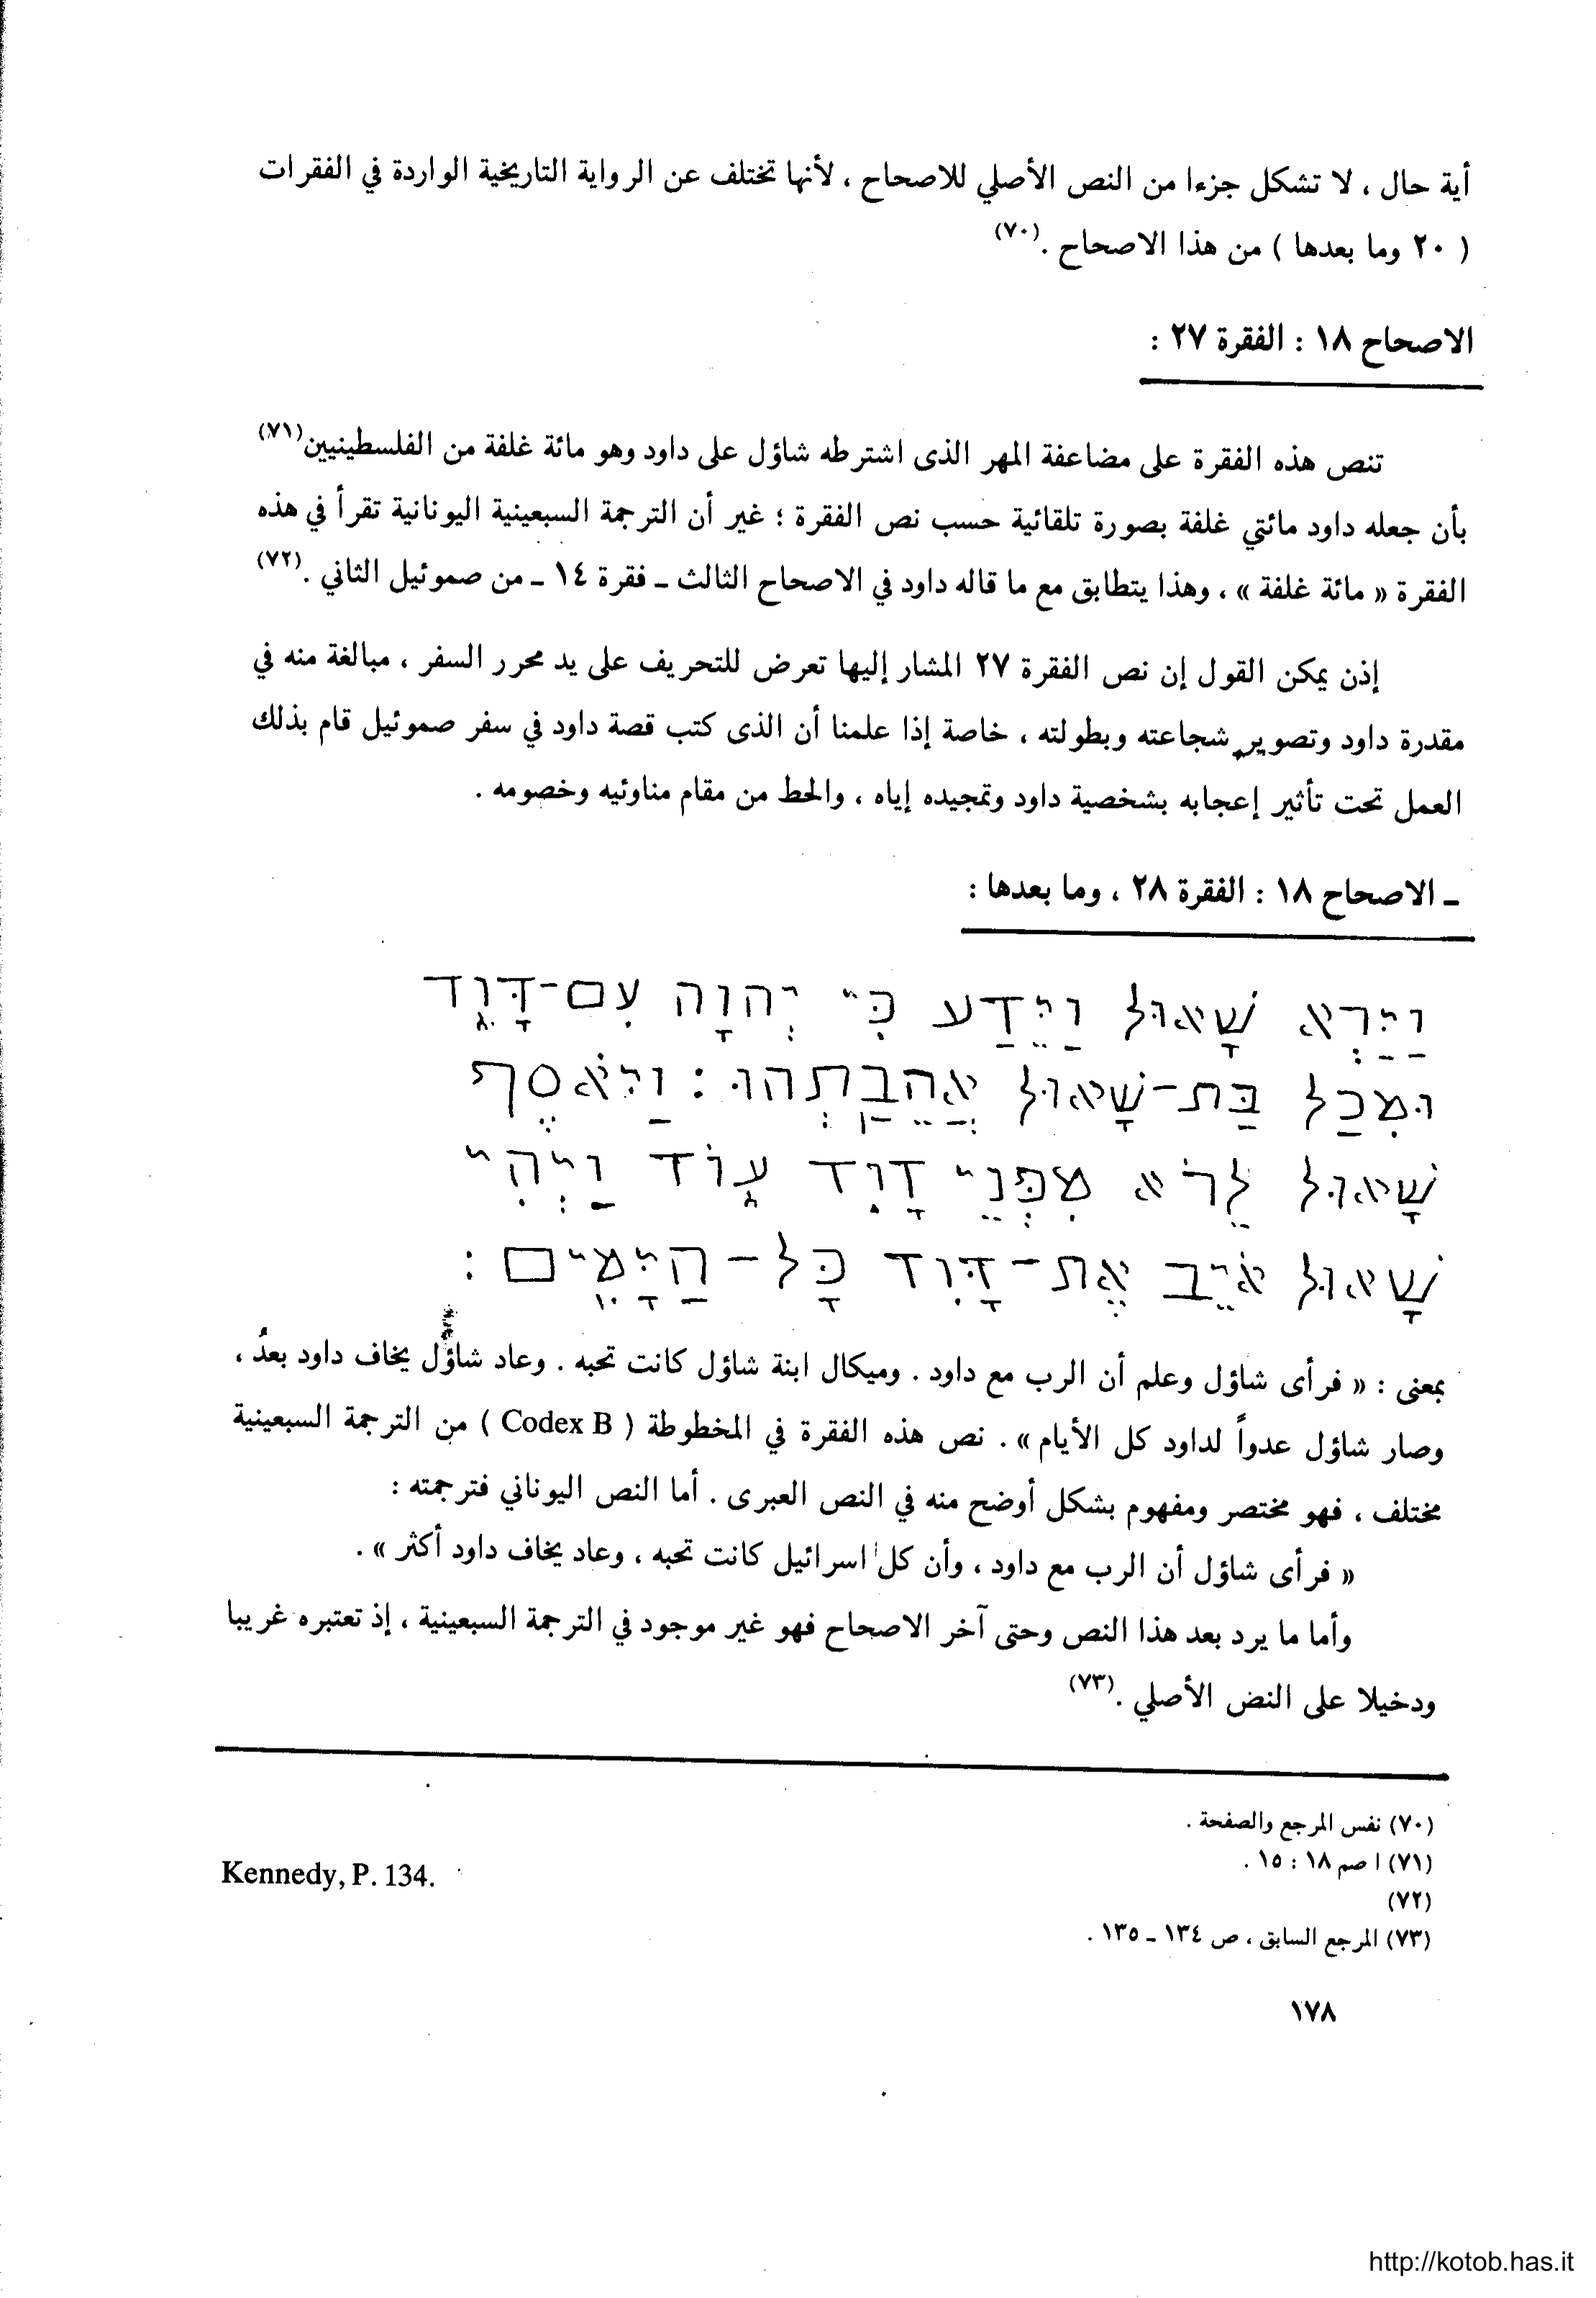 أية حال ، لا تشكل جزءا من النص الأصلي للاصحاح ، لأنها تختلف عن الرواية التاريخية الواردة في الفقرات
( ٢٠ وما بعدها ) من هذا الاصحاح .(٧٠)
الاصحاح ١٨ : الفقرة ٢٧ :
تنص هذه الفقرة على مضاعفة المهر الذى اشترطه شاؤل على داود وهو مائة غلفة من الفلسطينيين(٧١)
بأن جعله داود مائتي غلفة بصورة تلقائية حسب نص الفقرة ؛ غير أن الترجمة السبعينية اليونانية تقرأ في هذه
الفقرة « مائة غلفة » ، وهذا يتطابق مع ما قاله داود في الاصحاح الثالث ـ فقرة ١٤ ـ من صموئيل الثاني .(٧٢)
إذن يمكن القول إن نص الفقرة ٢٧ المشار إليها تعرض للتحريف على يد محرر السفر ، مبالغة منه في
مقدرة داود وتصوير شجاعته وبطولته ، خاصة إذا علمنا أن الذى كتب قصة داود في سفر صموئيل قام بذلك
العمل تحت تأثير إعجابه بشخصية داود وتمجيده إياه ، والحط من مقام مناوئيه وخصومه .
ـ الاصحاح ١٨ : الفقرة ٢٨ ، وما بعدها :
וַיַּרְא שָׁאוּל וַיֵּדַע כִּי יְהוָה עִם-דָּוִד
וּמִכַל בַּת-שָׁאוּל אֲהֵבַתְהוּ : וַיֹּאסֶף
שָׁאוּל לֵרֹא מִפְּנֵי דָוִד עוֹד וַיְהִי
שָׁאוּל אֹיֵב אֶת-דָּוִד כָּל-הַיָּמִים :
بمعنى : « فرأى شاؤل وعلم أن الرب مع داود . وميكال ابنة شاؤل كانت تحبه . وعاد شاؤُل يخاف داود بعدُ ،
وصار شاؤل عدواً لداود كل الأيام » . نص هذه الفقرة في المخطوطة ( Codex B ) من الترجمة السبعينية
مختلف ، فهو مختصر ومفهوم بشكل أوضح منه في النص العبرى . أما النص اليوناني فترجمته :
« فرأى شاؤل أن الرب مع داود ، وأن كل اسرائيل كانت تحبه ، وعاد يخاف داود أكثر » .
وأما ما يرد بعد هذا النص وحتى آخر الاصحاح فهو غير موجود في الترجمة السبعينية ، إذ تعتبره غريبا
ودخيلا على النض الأصلي .(٧٣)
(٧٠) نفس المرجع والصفحة .
(٧١) ا صم ١٨ : ١٥ .
(٧٢) Kennedy, P. 134.
(٧٣) المرجع السابق ، ص ١٣٤ ـ ١٣٥ .
١٧٨
http://kotob.has.it